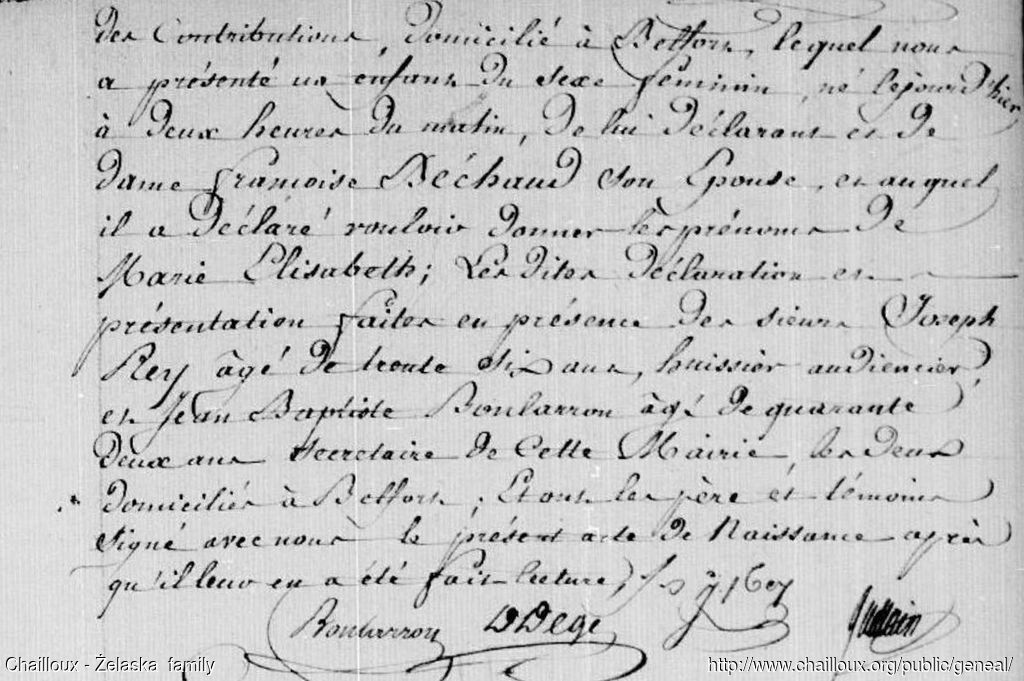 des Contributions, domicilié à Belfort, lequel nous
a présenté un enfant du sexe féminin, né le jour d'hier
à deux heures du matin, de lui déclarant et de
dame françoise Déchaud son Epouse, et auquel
il a déclaré vouloir donner les prénoms de
Marie Elisabeth; Les dites déclaration et
présentation faites en présence des sieurs Joseph
Rey âgé de trente six ans, huissier audiencier,
et Jean Baptiste Boularron âgé de quarante
deux ans secretaire de Cette Mairie, les deux
domiciliés à Belfort; Et ont les père et témoins
signé avec nous le présent acte de Naissance après
qu'il leur en a été fait lecture,
Boularron
Chailloux - Żelaska family
http://www.chailloux.org/public/geneal/